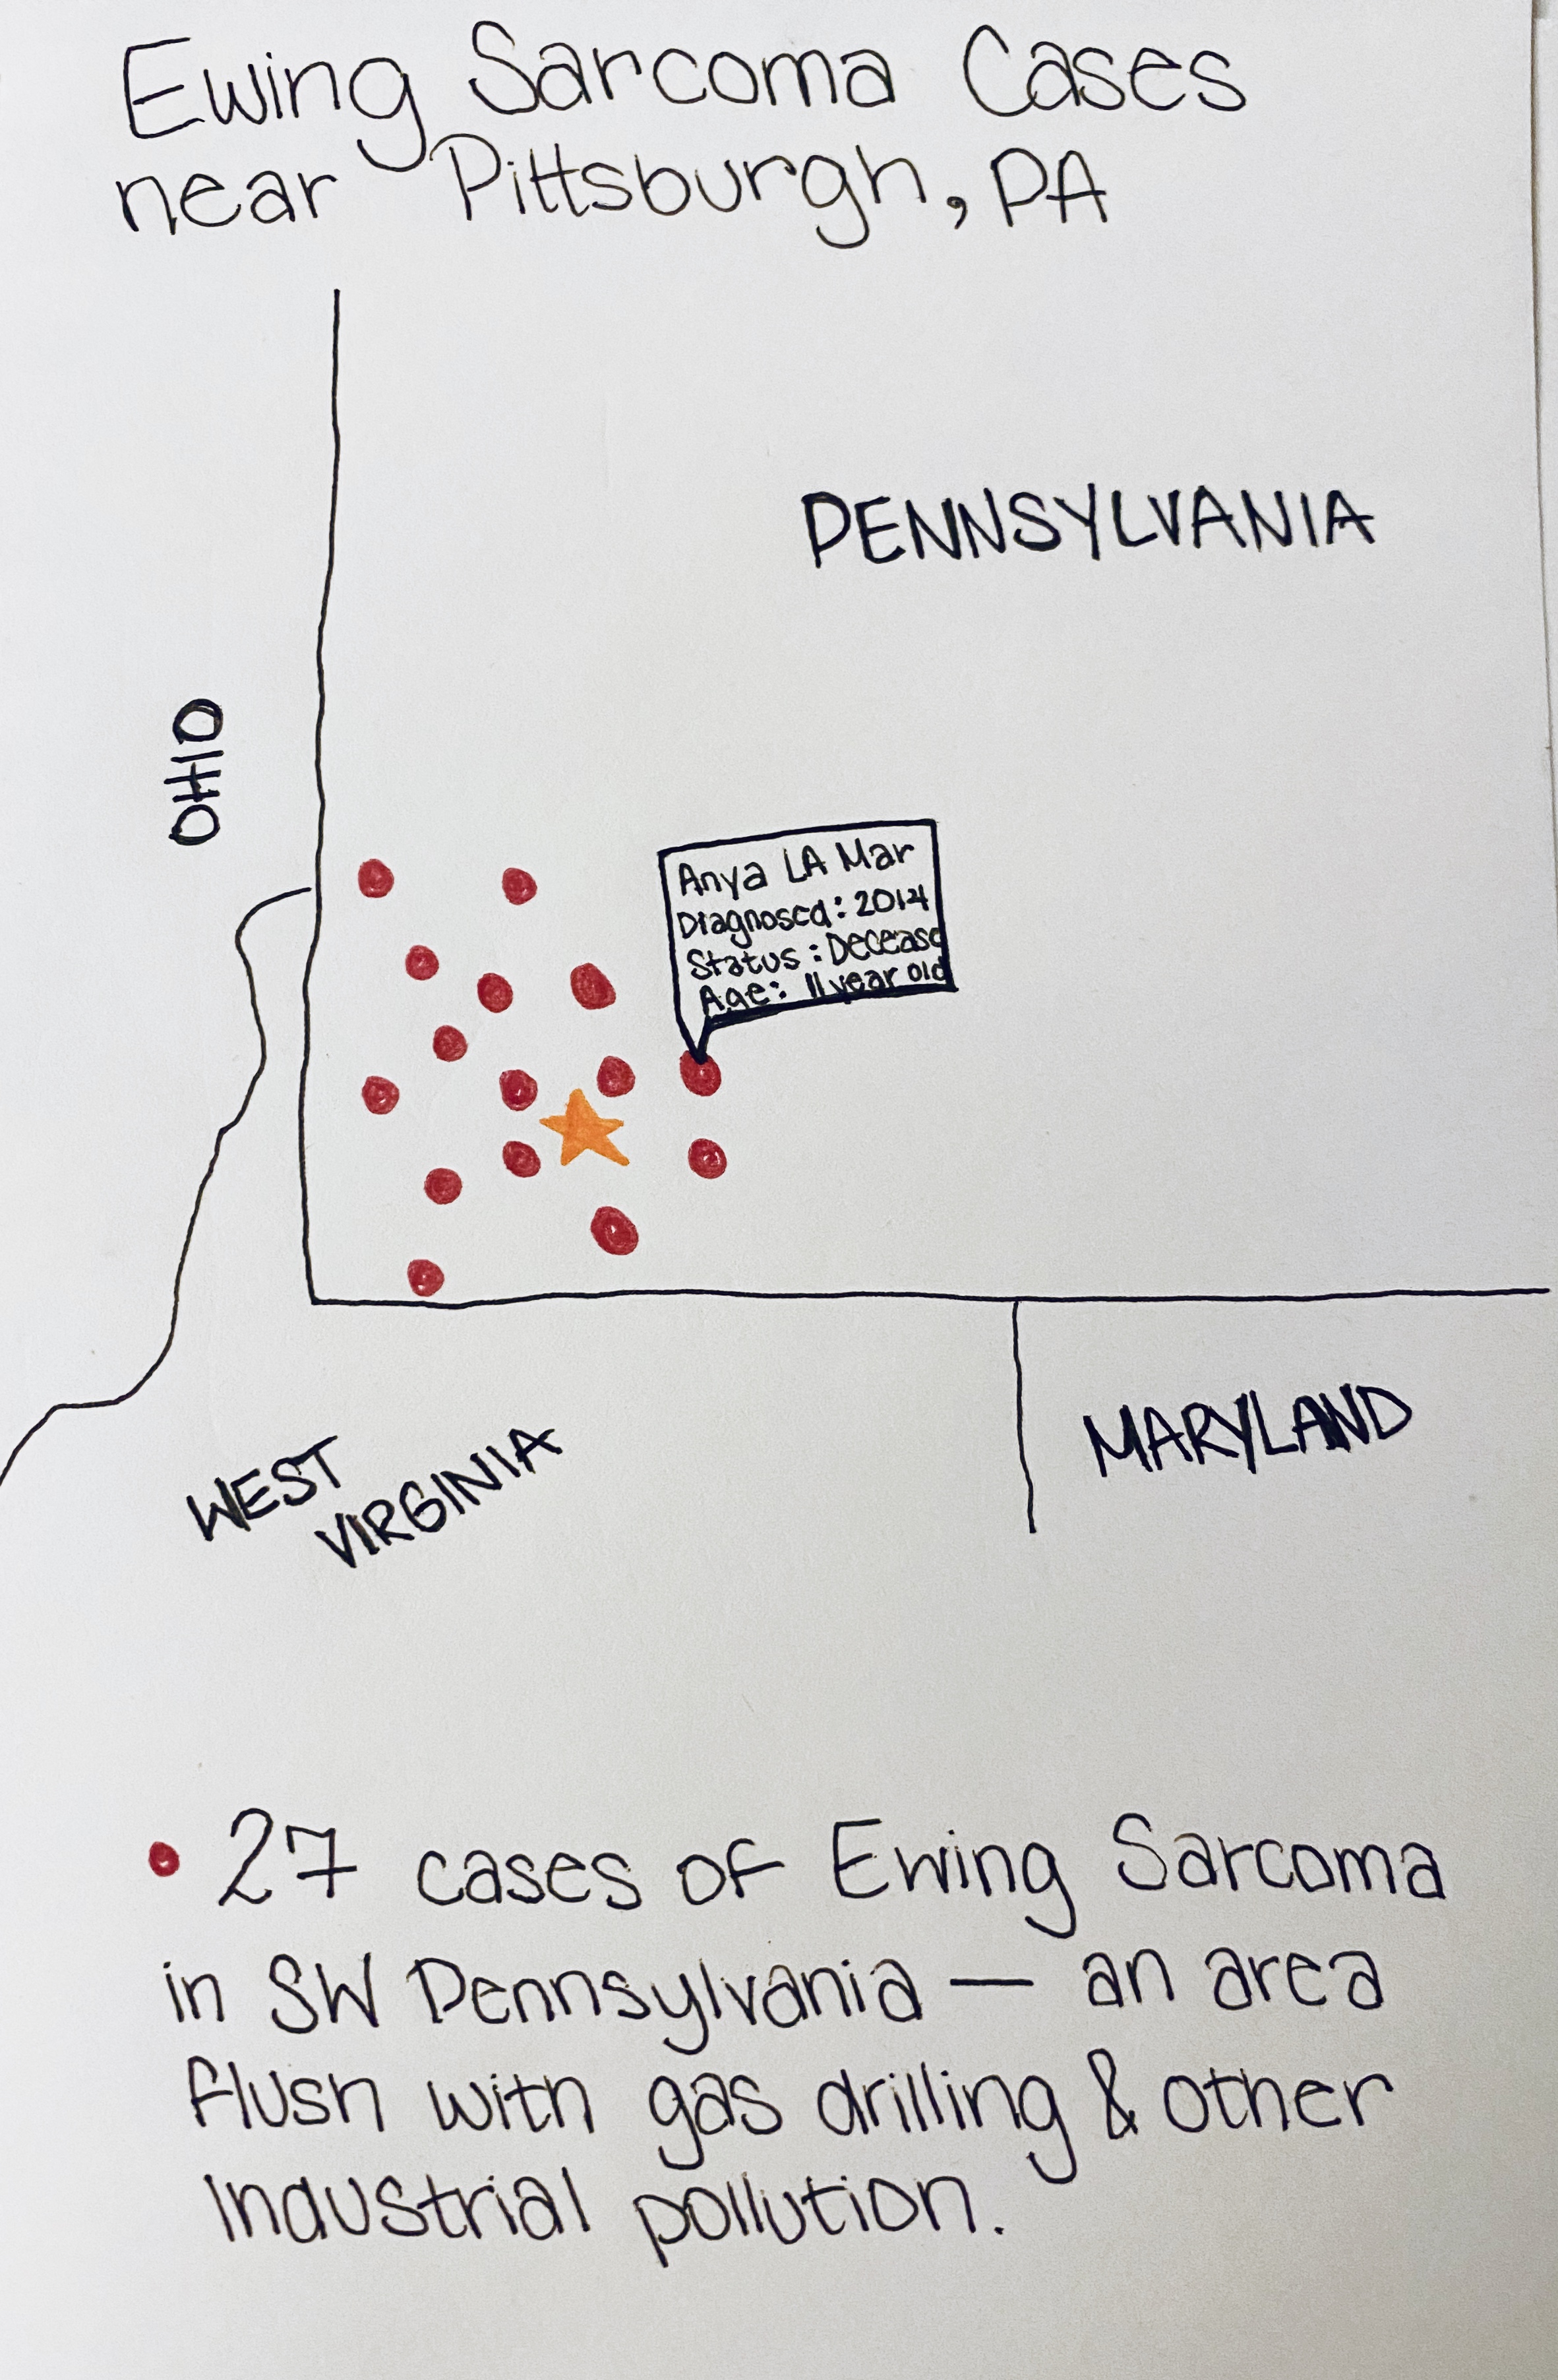 Ewing Sarcoma Cases
near Pittsburgh, PA
PENNSYLVANIA
OHIO
Anya LA Mar
Diagnosed: 2014
Status: Deceasd
Age: 11 year old
WEST
VIRGINIA
MARYLAND
• 27 cases of Ewing Sarcoma
in SW Pennsylvania — an area
flush with gas drilling & other
industrial pollution.